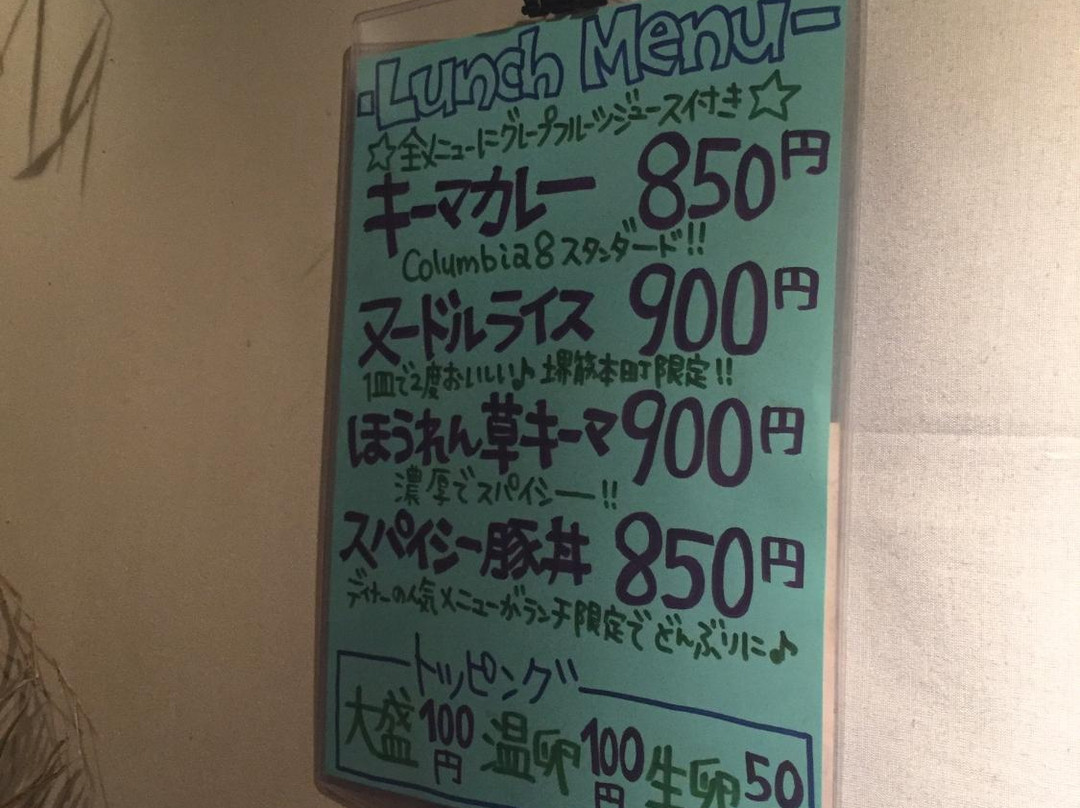 -Lunch Menu-
☆全メニューにグレープフルーツジュース付き☆
キーマカレー 850円
Columbia8 スタンダード!!
ヌードルライス 900円
1皿で2度おいしい♪ 堺筋本町限定!!
ほうれん草キーマ 900円
濃厚でスパイシー!!
スパイシー豚丼 850円
ディナーの人気メニューがランチ限定でどんぶりに♪
トッピング
大盛 100円 温卵 100円 生卵 50